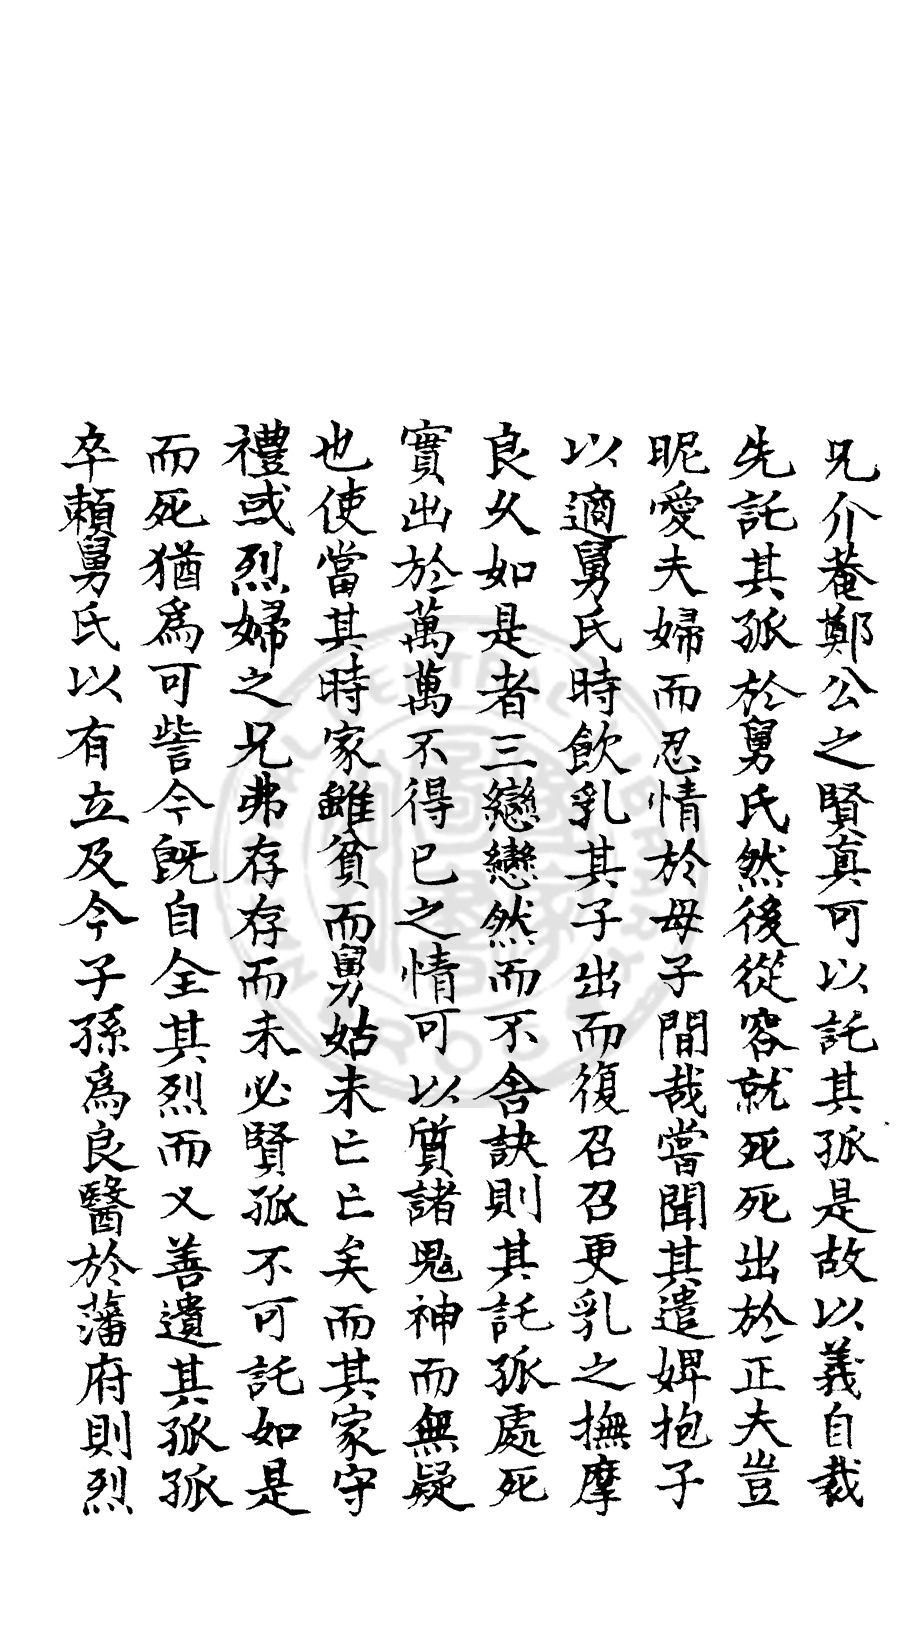 兄介菴鄭公之賢真可以託其孤是故以義自裁
先託其孤於舅氏然後從容就死死出於正夫豈
昵愛夫婦而忍情於母子間哉嘗聞其遣婢抱子
以適舅氏時飲乳其子出而復召召更乳之撫摩
良久如是者三戀戀然而不舍訣則其託孤處死
實出於萬萬不得已之情可以質諸鬼神而無疑
也使當其時家雖貧而舅姑未亡亡矣而其家守
禮或烈婦之兄弗存存而未必賢孤不可託如是
而死猶為可訾今既自全其烈而又善遺其孤孤
卒賴舅氏以有立及今子孫為良醫於藩府則烈